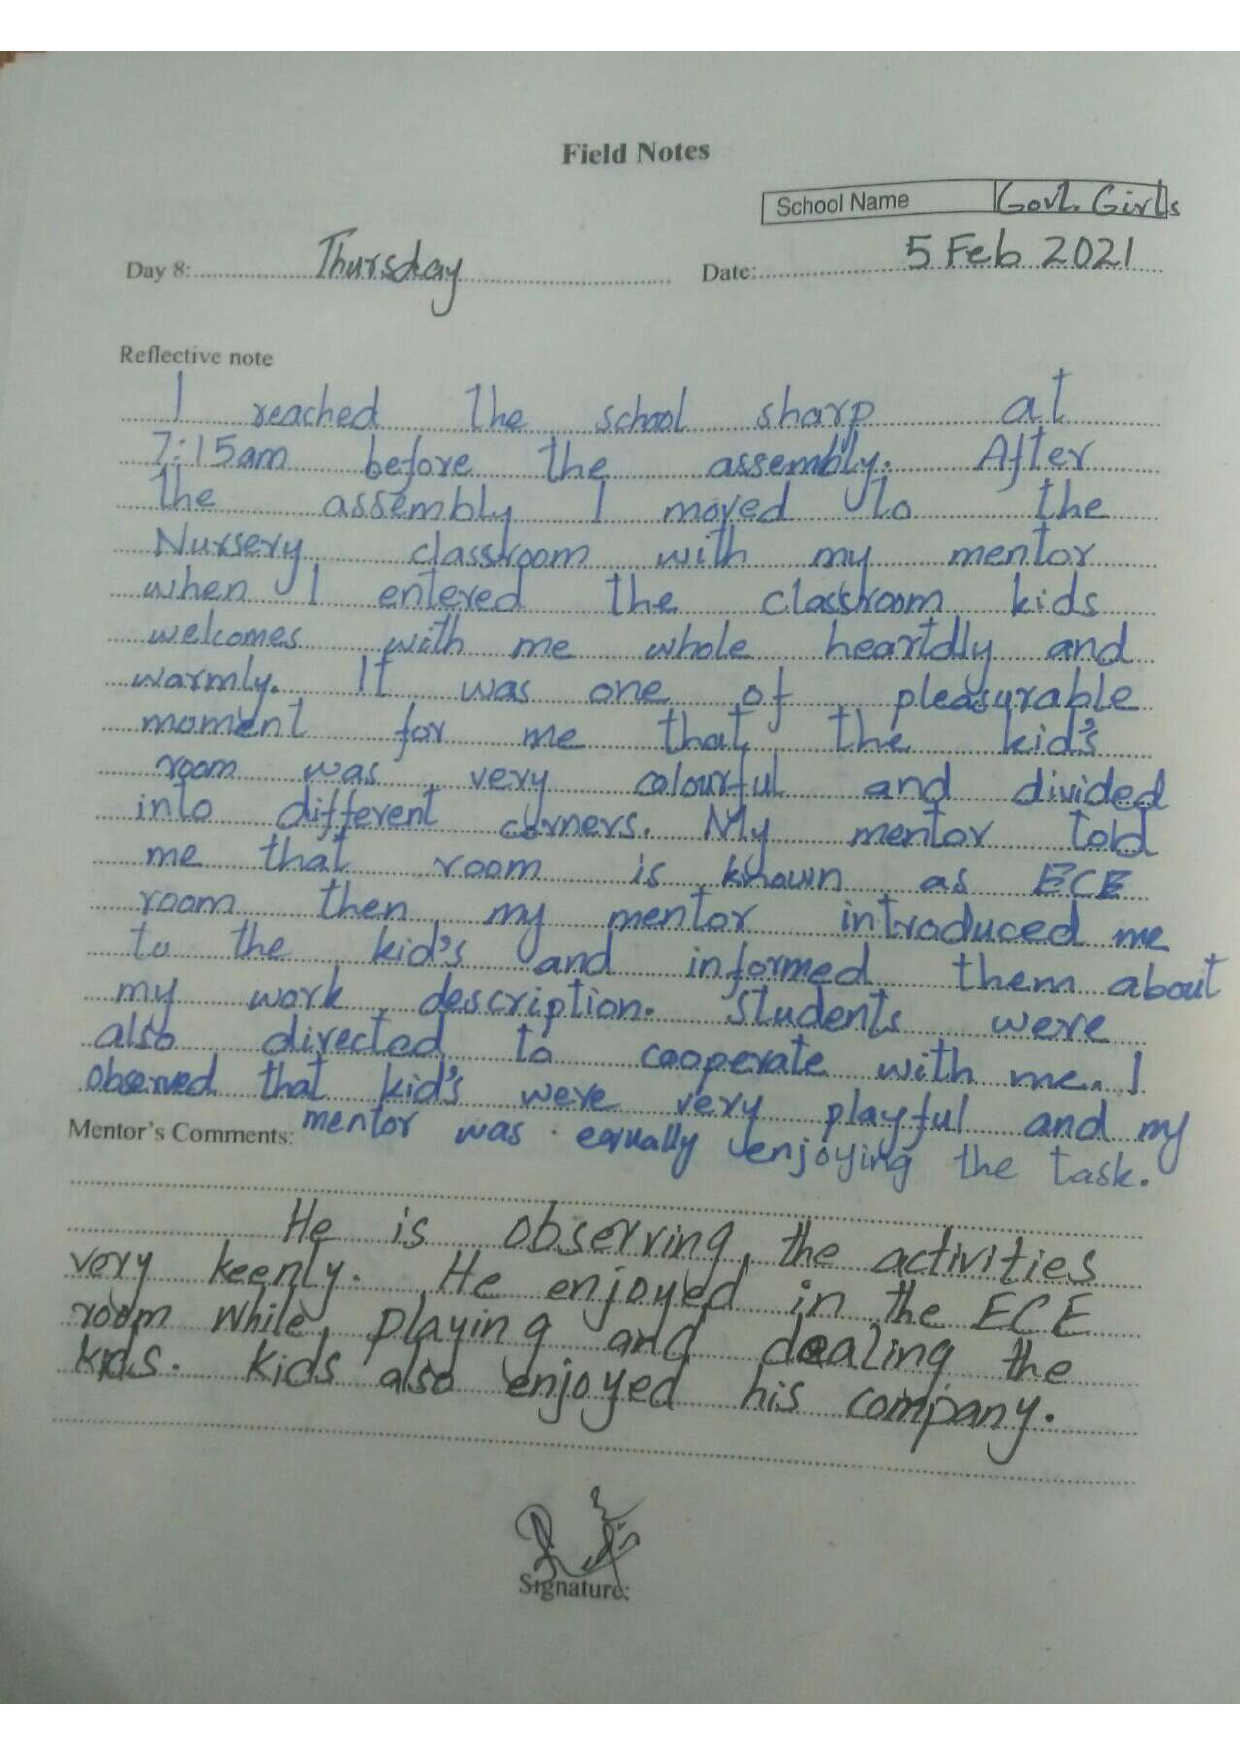 Field Notes
School Name Govt. Girls
Day 8: Thursday Date: 5 Feb 2021
Reflective note
I reached the school sharp at
7:15am before the assembly. After
the assembly I moved to the
Nursery classroom with my mentor
when I entered the classroom kids
welcomes with me whole heartdly and
warmly. It was one of pleasurable
moment for me that the kid's
room was very colourful and divided
into different corners. My mentor told
me that room is known as ECE
room then my mentor introduced me
to the kid's and informed them about
my work description. Students were
also directed to cooperate with me. I
observed that kid's were very playful and my
Mentor's Comments: mentor was equally enjoying the task.
He is observing the activities
very keenly. He enjoyed in the ECE
room while playing and dealing the
kids. Kids also enjoyed his company.
Signature: